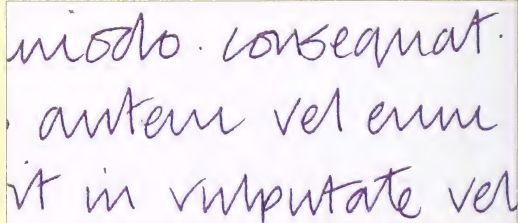 modo. consequat.
autem vel eum
it in vulputate vel